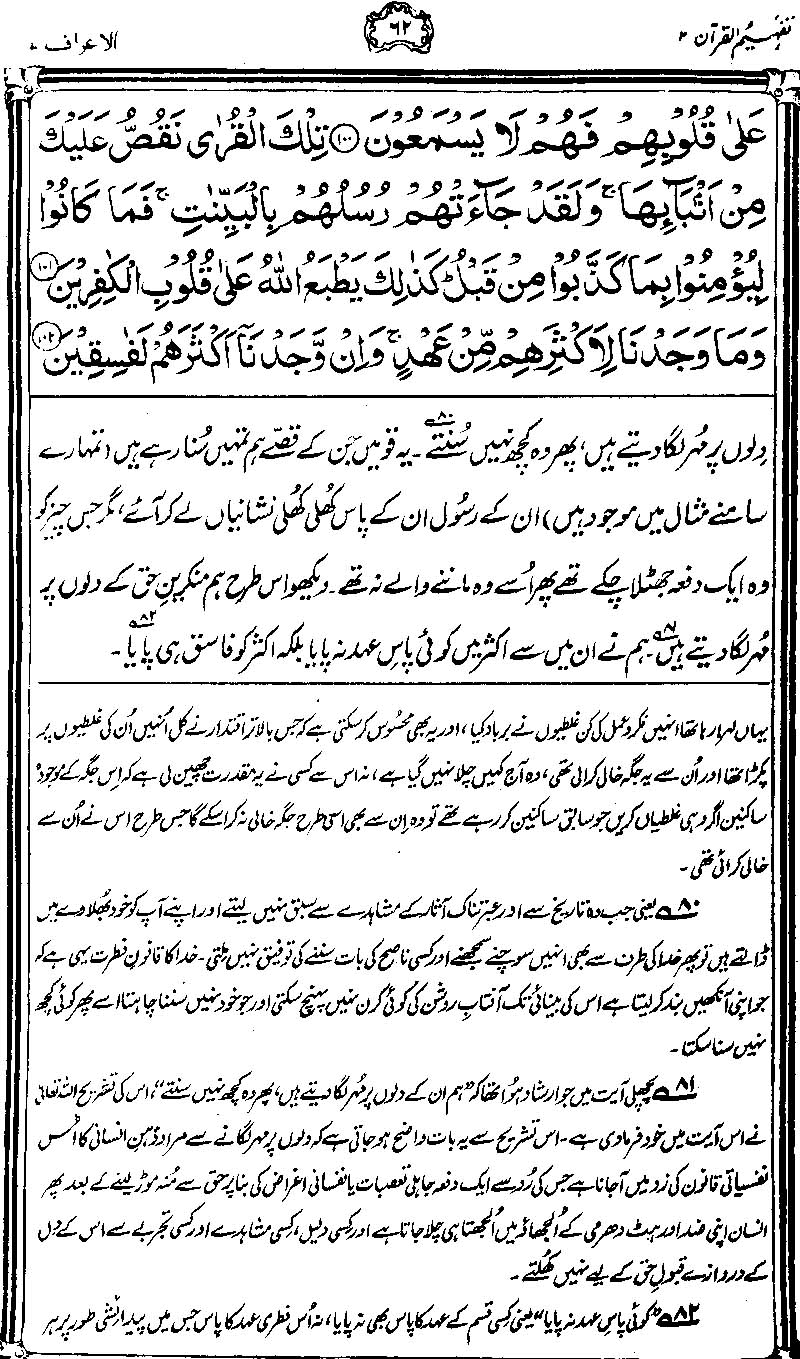 تفہیم القرآن ۲
۶۲
الاعراف ۷
عَلٰى قُلُوْبِهِمْ فَهُمْ لَا يَسْمَعُوْنَ ۝۱۰۰ تِلْكَ الْقُرٰى نَقُصُّ عَلَيْكَ
مِنْ اَنْۢبَآىِٕهَا ۚ وَلَقَدْ جَآءَتْهُمْ رُسُلُهُمْ بِالْبَيِّنٰتِ ۚ فَمَا كَانُوْا
لِيُؤْمِنُوْا بِمَا كَذَّبُوْا مِنْ قَبْلُ ؕ كَذٰلِكَ يَطْبَعُ اللّٰهُ عَلٰى قُلُوْبِ الْكٰفِرِيْنَ ۝۱۰۱
وَمَا وَجَدْنَا لِاَكْثَرِهِمْ مِّنْ عَهْدٍ ۚ وَاِنْ وَّجَدْنَاۤ اَكْثَرَهُمْ لَفٰسِقِيْنَ ۝۱۰۲
دلوں پر مُہر لگا دیتے ہیں، پھر وہ کچھ نہیں سُنتے۸۰۔ یہ قومیں جن کے قصّے ہم تمہیں سُنا رہے ہیں (تمہارے
سامنے مثال میں موجود ہیں) ان کے رسُول ان کے پاس کھُلی کھُلی نشانیاں لے کر آئے، مگر جس چیز کو
وہ ایک دفعہ جھٹلا چکے تھے پھر اُسے وہ ماننے والے نہ تھے۔ دیکھو اس طرح ہم منکرینِ حق کے دلوں پر
مُہر لگا دیتے ہیں۸۱۔ ہم نے ان میں سے اکثر میں کوئی پاسِ عہد نہ پایا بلکہ اکثر کو فاسق ہی پایا۸۲۔
یہاں لہرا رہا تھا انہیں فکر و عمل کی کن غلطیوں نے برباد کیا، اور یہ بھی محسُوس کر سکتی ہے کہ جس بالا تر اقتدار نے کل اُنہیں اُن کی غلطیوں پر
پکڑا تھا اور اُن سے یہ جگہ خالی کرائی تھی، وہ آج کہیں چلا نہیں گیا ہے، نہ اس سے کسی نے یہ مقدرت چھین لی ہے کہ اِس جگہ کے موجودہ
ساکنین اگر وہی غلطیاں کریں جو سابق ساکنین کر رہے تھے تو وہ اِن سے بھی اسی طرح جگہ خالی نہ کرا سکے گا جس طرح اس نے اُن سے
خالی کرائی تھی۔
۸۰ یعنی جب وہ تاریخ سے اور عبرتناک آثار کے مشاہدے سے سبق نہیں لیتے اور اپنے آپ کو خود بھُلاوے میں
ڈالتے ہیں تو پھر خدا کی طرف سے بھی انہیں سوچنے سمجھنے اور کسی ناصح کی بات سننے کی توفیق نہیں ملتی۔ خدا کا قانونِ فطرت یہی ہے کہ
جو اپنی آنکھیں بند کر لیتا ہے اس کی بینائی تک آفتابِ روشن کی کوئی کرن نہیں پہنچ سکتی اور جو خود نہیں سننا چاہتا اسے پھر کوئی کچھ
نہیں سنا سکتا۔
۸۱ پچھلی آیت میں جو ارشاد ہُوا تھا کہ "ہم ان کے دلوں پر مُہر لگا دیتے ہیں، پھر وہ کچھ نہیں سنتے"، اس کی تشریح اللہ تعالیٰ
نے اس آیت میں خود فرما دی ہے۔ اس تشریح سے یہ بات واضح ہو جاتی ہے کہ دلوں پر مہر لگانے سے مراد ذہنِ انسانی کا اُس
نفسیاتی قانون کی زد میں آ جانا ہے جس کی رُو سے ایک دفعہ جاہلی تعصبات یا نفسانی اغراض کی بنا پر حق سے مُنہ موڑ لینے کے بعد پھر
انسان اپنی ضد اور ہٹ دھرمی کے اُلجھاؤ میں اُلجھتا ہی چلا جاتا ہے اور کسی دلیل، کسی مشاہدے اور کسی تجربے سے اس کے دل
کے دروازے قبولِ حق کے لیے نہیں کھُلتے۔
۸۲ "کوئی پاسِ عہد نہ پایا" یعنی کسی قسم کے عہد کا پاس بھی نہ پایا، نہ اُس فطری عہد کا پاس جس میں پیدائشی طور پر ہر